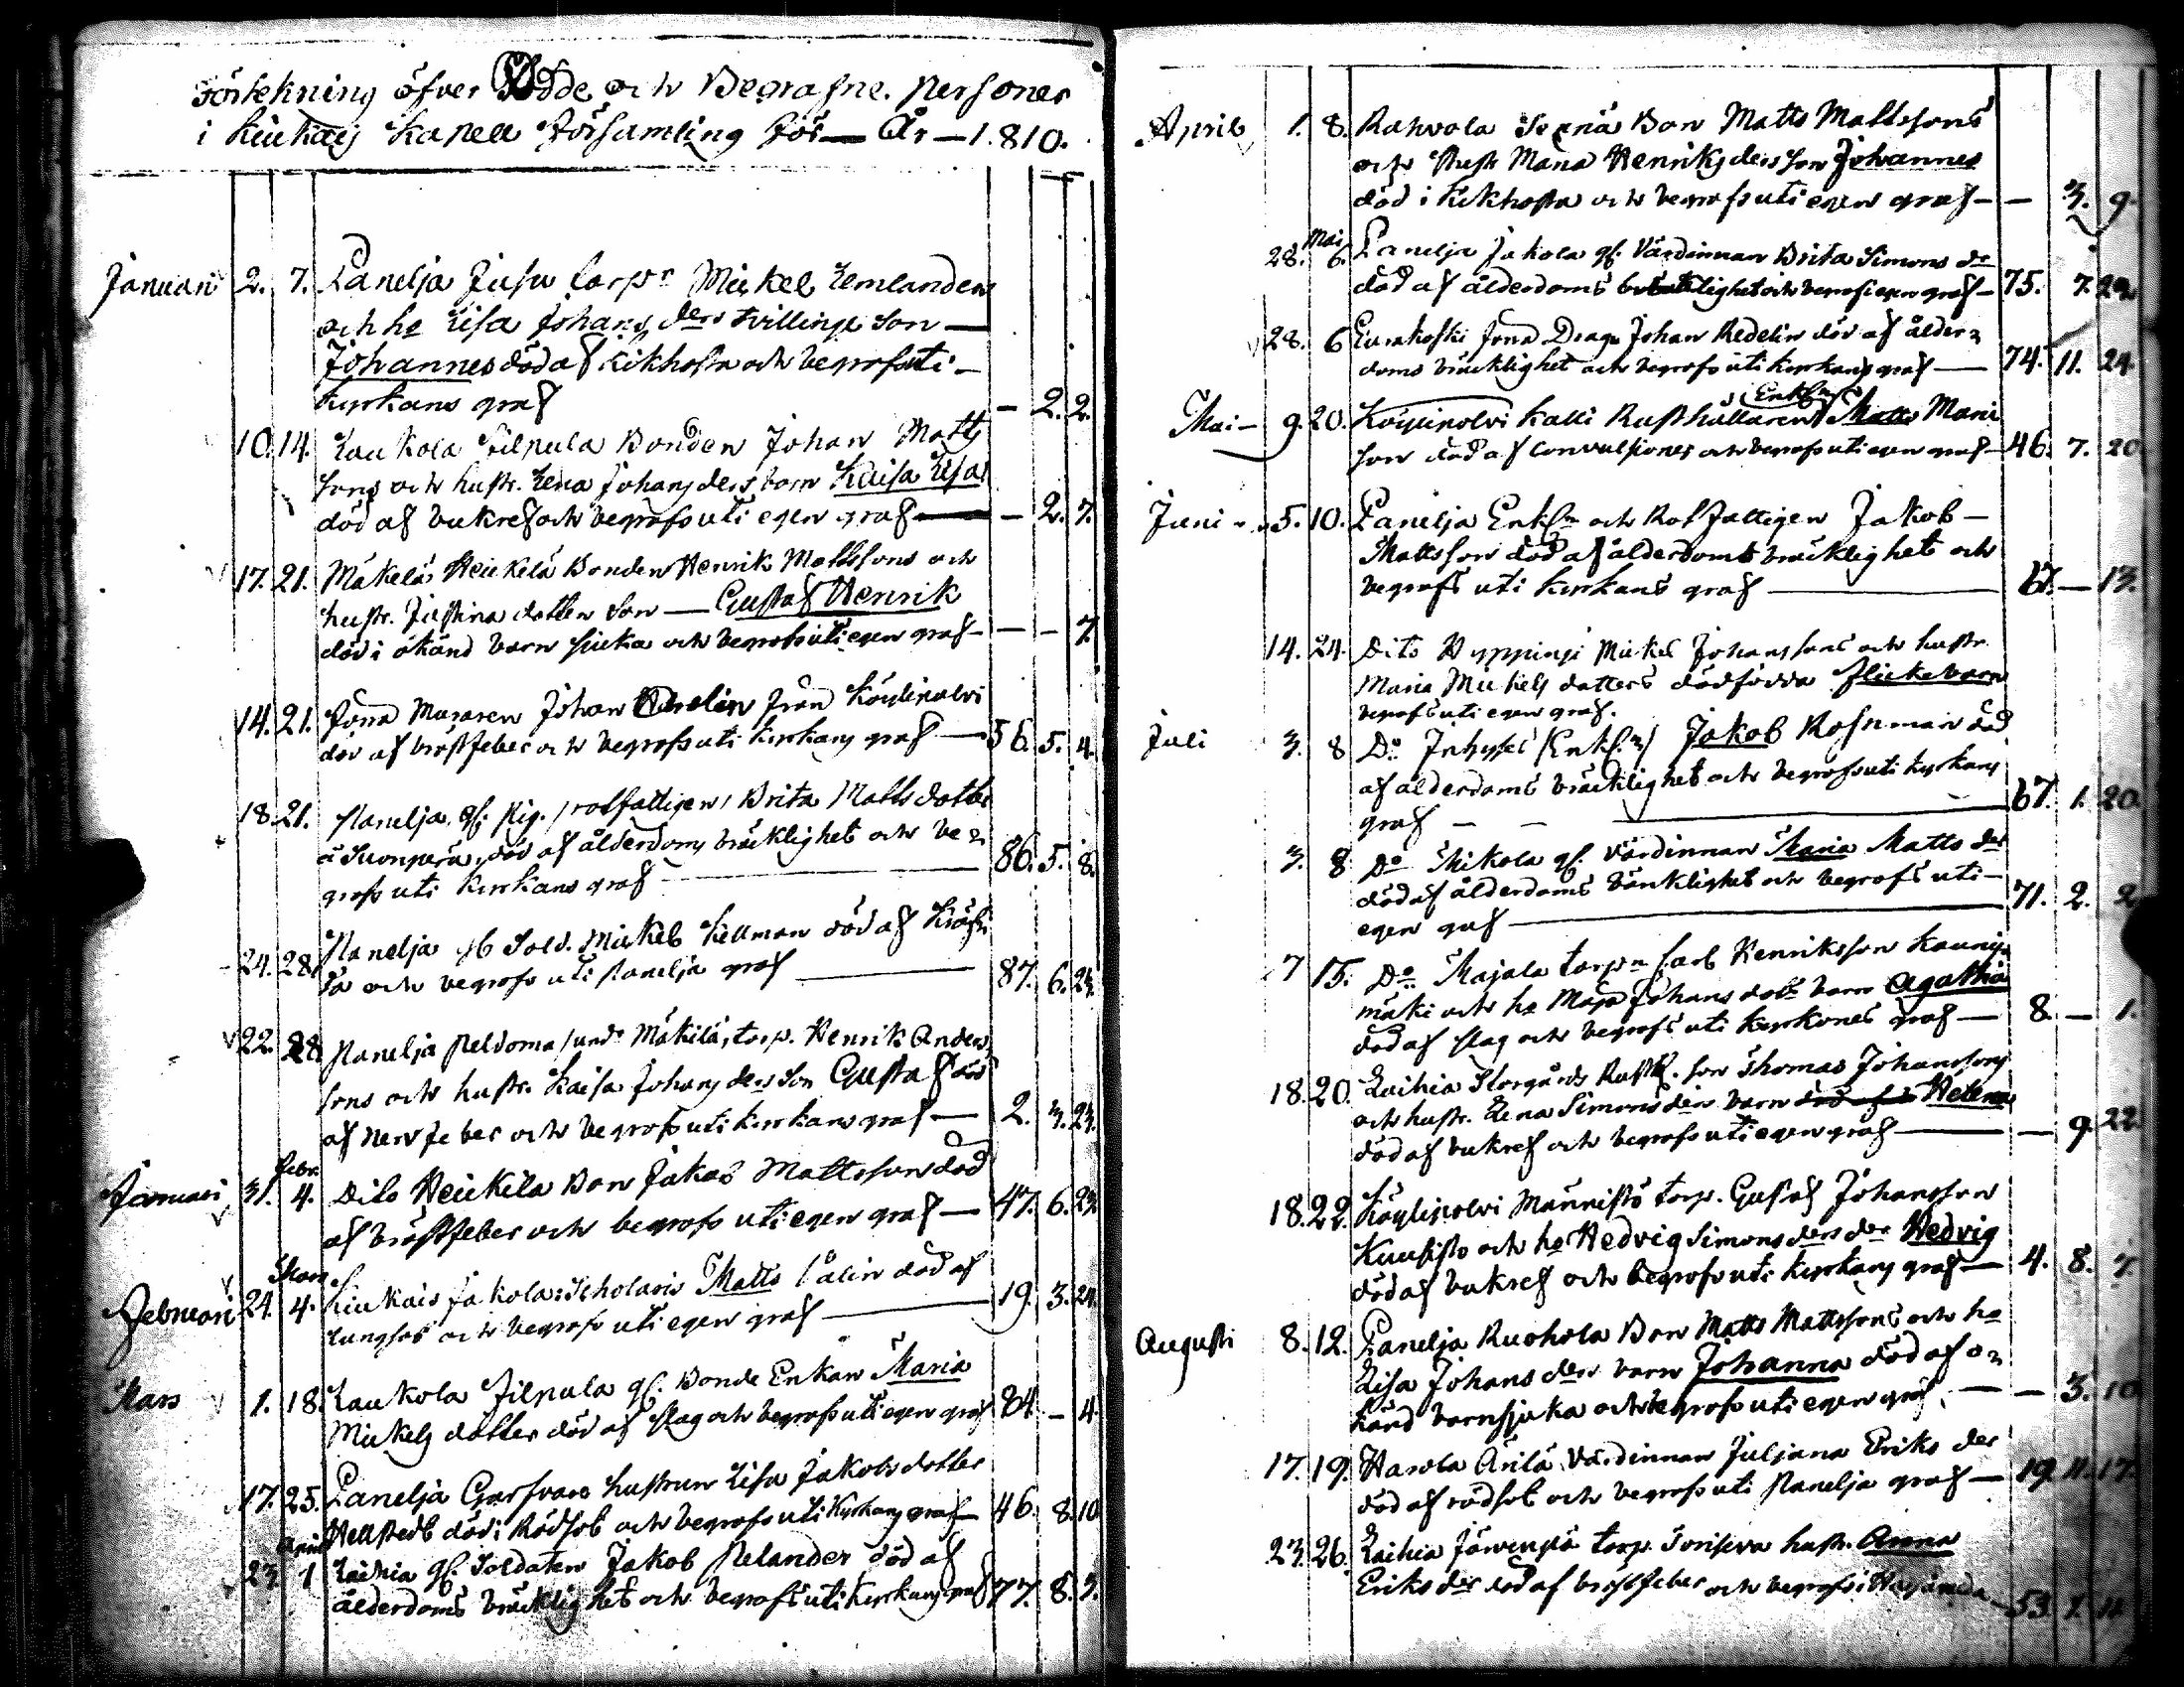 Förtekning öfver Döde och Begrafne personer
i Kiukais Kapell Församling för — År — 1.810.
Januari 2. 7. Panelja Jusu torp:r Mickel Lemlanden
och ho Lisa Johans ders tvillinge son —
Johannes död af kikhosta och begrafs uti
kyrkans graf — 2. 2.
10. 14. Laukola Filpula Bonden Johan Matts
sons och hustr. Lena Johans ders barn Kaisa Lisa
död af bukref och begrofs uti egen graf — 2. 7.
17. 21. Mäkelä Heickilä Bonden Henrik Mattssons och
hustr. Justina dotters Son — Gustaf Henrik
död i okänd barn siuka och begrofs uti egen graf — — — 7.
14. 21. Förra Muraren Johan från Köylipolvi
död af bröstfeber och begrofs uti kyrkans graf — 56. 5. 4.
18. 21. Panelja gf: Pig. /rotfattigen/ Brita Matts dotter
död af ålderdoms bräcklighet och be=
grofs uti kyrkans graf — 86. 5. 8.
24. 28. Panelja Sold. Mickel Kellman död af Kräf=
ta och begrofs uti Panelja graf — 87. 6. 24.
22. 28. Panelja Peldoma /und: Mäkilä, torp. Henrik Anders
sons och hustr. Kaisa Johans ders Son Gustaf död
af Nervfeber och begrofs uti kyrkans graf — 2. 3. 23.
Januari 31. Febr. 4. Dito Heickilä Bon Jakob Mattsson död
af bröstfeber och begrofs uti egen graf — 47. 6. 23.
Februari 24. Mars 4. Kiukais Jakola: Scholaris Matts död af
lungsot och begrofs uti egen graf — 19. 3. 24.
Mars 1. 18. Laukola Filpula gf. Bonde Enkan Maria
Mickels dotter död af slag och begrofs uti egen graf 84 — 4.
17. 25. Panelja Garfvare hustrun Lisa Jakobs dotter
Hellstedt död i Rödsot och begrofs uti Kyrkans graf — 46. 8. 10
23. April 1 Laihia gf. Soldaten Jakob Pelander död af
ålderdoms bräcklighet och begrofs uti Kyrkans graf 77. 8. 5.
April 1. 8. Rahvola Seppä Bon Matts Mattssons
och Hustr Maria Henriks ders son Johannes
död i Kikhosta och begrofs uti egen graf — — 3. 9.
28. Mai 6. Panelja Jakola gf. Värdinnan Brita Simons dr
död af ålderdoms bräcklighet och begrofs i egen graf — 75. 7. 29.
28. 6 Eurakoski förra Drag. Johan Redelin död af ålder=
doms bräcklighet och begrofs uti kyrkans graf — 74. 11. 24.
Mai — 9. 20. Köylipolvi Kalli Rusthållaren /Enkl:n/ Matts Matts
son död af Convulsioner och begrofs uti egen graf — 46. 7. 20
Juni — 5. 10. Panelja Enkl:n och Rotfattigen Jakob —
Mattsson död af ålderdoms bräcklighet och
begrofs uti kyrkans graf — 67. — 13.
14. 24. Dito Mickel Johanssons och hustr.
Maria Mickels dotters dödfödda flickebarn
begrofs uti egen graf.
Juli 3. 8 Do /Enkl:n/ Jakob Rosnman död
af ålderdoms bräcklighet och begrofs uti kyrkans
graf — 67. 1. 20.
3. 8 Do Mikola gf. Värdinnan Maria Matts dr
död af ålderdoms bräcklighet och begrofs uti —
egen graf — 71. 2. 2
7 15. Do Majala torp:n Carl Henriksson Kaunis=
mäki och ho Maja Johans dotr barn Agatha
död af slag och begrofs uti kyrkones graf — 8. — 1.
18. 20. Laihia Storgårds Rusth. son Thomas Johanssons
och hustr. Lena Simons ders barn Helena
död af bukref och begrofs uti egen graf — — 9. 22
18. 22. Köylipolvi Männistö torp. Gustaf Johansson
Kuusisto och ho Hedvig Simons ders der Hedvig
död af bukref och begrofs uti kyrkans graf — 4. 8. 7.
Augusti 8. 12. Panelja Ruohola Bon Matts Mattssons och ho
Lisa Johans ders barn Johanna död af o=
känd barnsjuka och begrofs uti egen graf. — — 3. 10
17. 19. Harola Anila Värdinnan Juljana Eriks der
död af rödsot och begrofs uti Panelja graf — 19 11. 17.
23. 26. Laihia Järvenpä torp. hustr. Anna
Eriks der död af bröstfeber och begrofs i — 53.